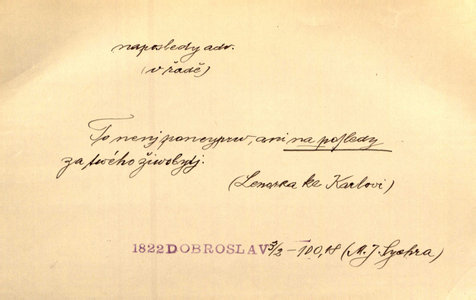 naposledy adv.
(v řadě)
To nenj ponejprw, ani na posledy
za twého žiwobytj.
(Lenorka ke Karlovi)
1822 DOBROSLAV 3/3 – 100,18 (M. J. Sychra)